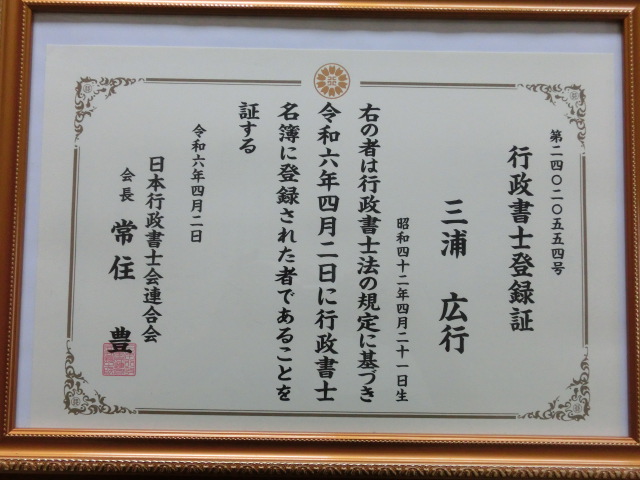 第二四〇二〇五五四号
行政書士登録証
三浦 広行
昭和四十二年四月二十一日生
右の者は行政書士法の規定に基づき
令和六年四月二日に行政書士
名簿に登録された者であることを
証する
令和六年四月二日
日本行政書士会連合会
会長 常住 豊